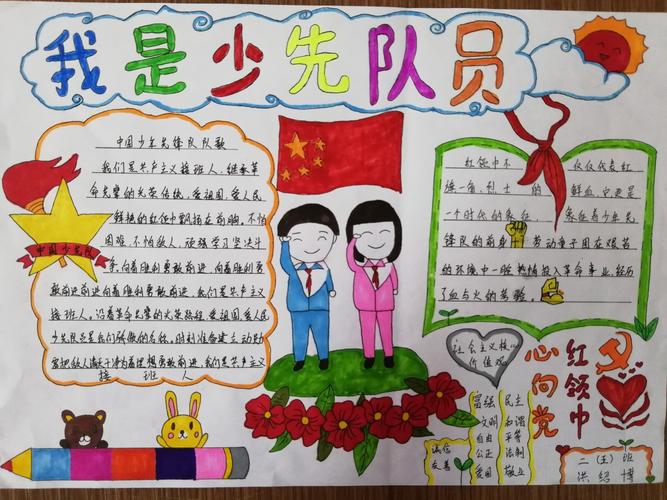 我是少先队员
中国少年先锋队队歌
我们是共产主义接班人,继承革
命先辈的光荣传统,爱祖国,爱人民
鲜艳的红领巾飘扬在前胸。不怕
困难,不怕敌人,顽强学习坚决斗
争,向着胜利勇敢前进,向着胜利勇
敢前进前进向着胜利勇敢前进,我们是共产主义
接班人。沿着革命先辈的光荣路程爱祖国,爱人民
少先队员是我们骄傲的名称。时刻准备建立功勋
要把敌人消灭干净为着理想勇敢前进,我们是共产主义
接 班 人
中国少先队
红领巾不 仅仅代表红
旗一角,烈士的 鲜血,它更是
一个时代的象征, 象征着少年先
锋队的前身 劳动童子团在艰苦
的环境中一腔热情投入革命事业,经历
了血与火的考验。
社会主义核心
价值观
富强 民主
文明 和谐
自由 平等
公正 法制
爱国 敬业
诚信
友善
红领巾
心向党
二(五)班
洪绍博